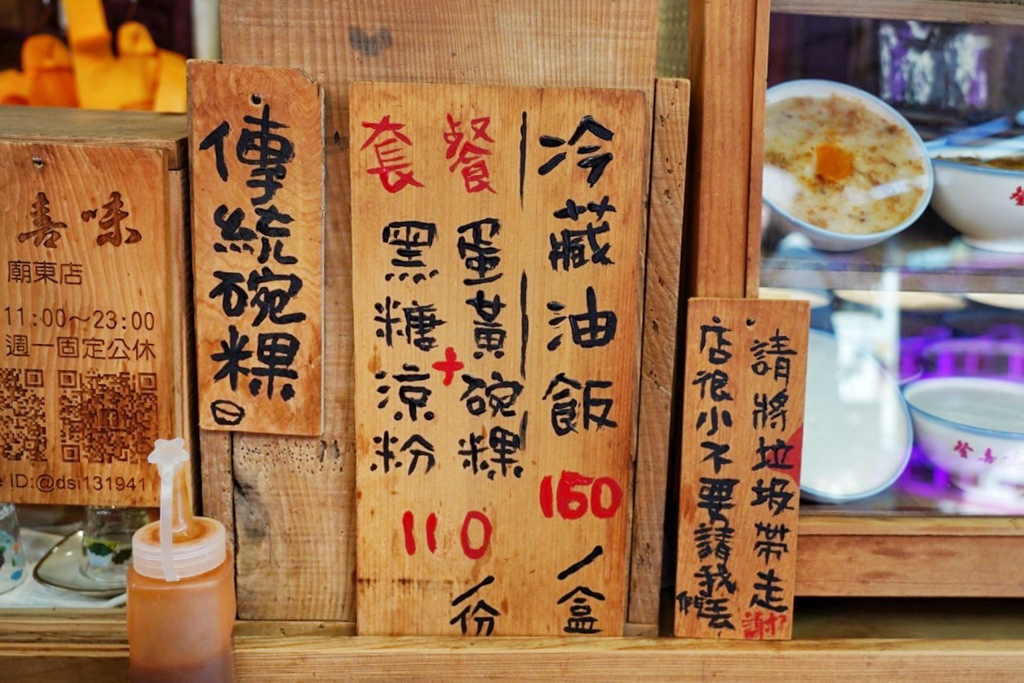 喜味
廟東店
11:00～23:00
週一固定公休
ID:@dsi131941
傳統碗粿
冷藏油飯160/盒
套餐
蛋黃碗粿
+
黑糖涼粉
110/份
請將垃圾帶走
店很小不要請我丟
謝